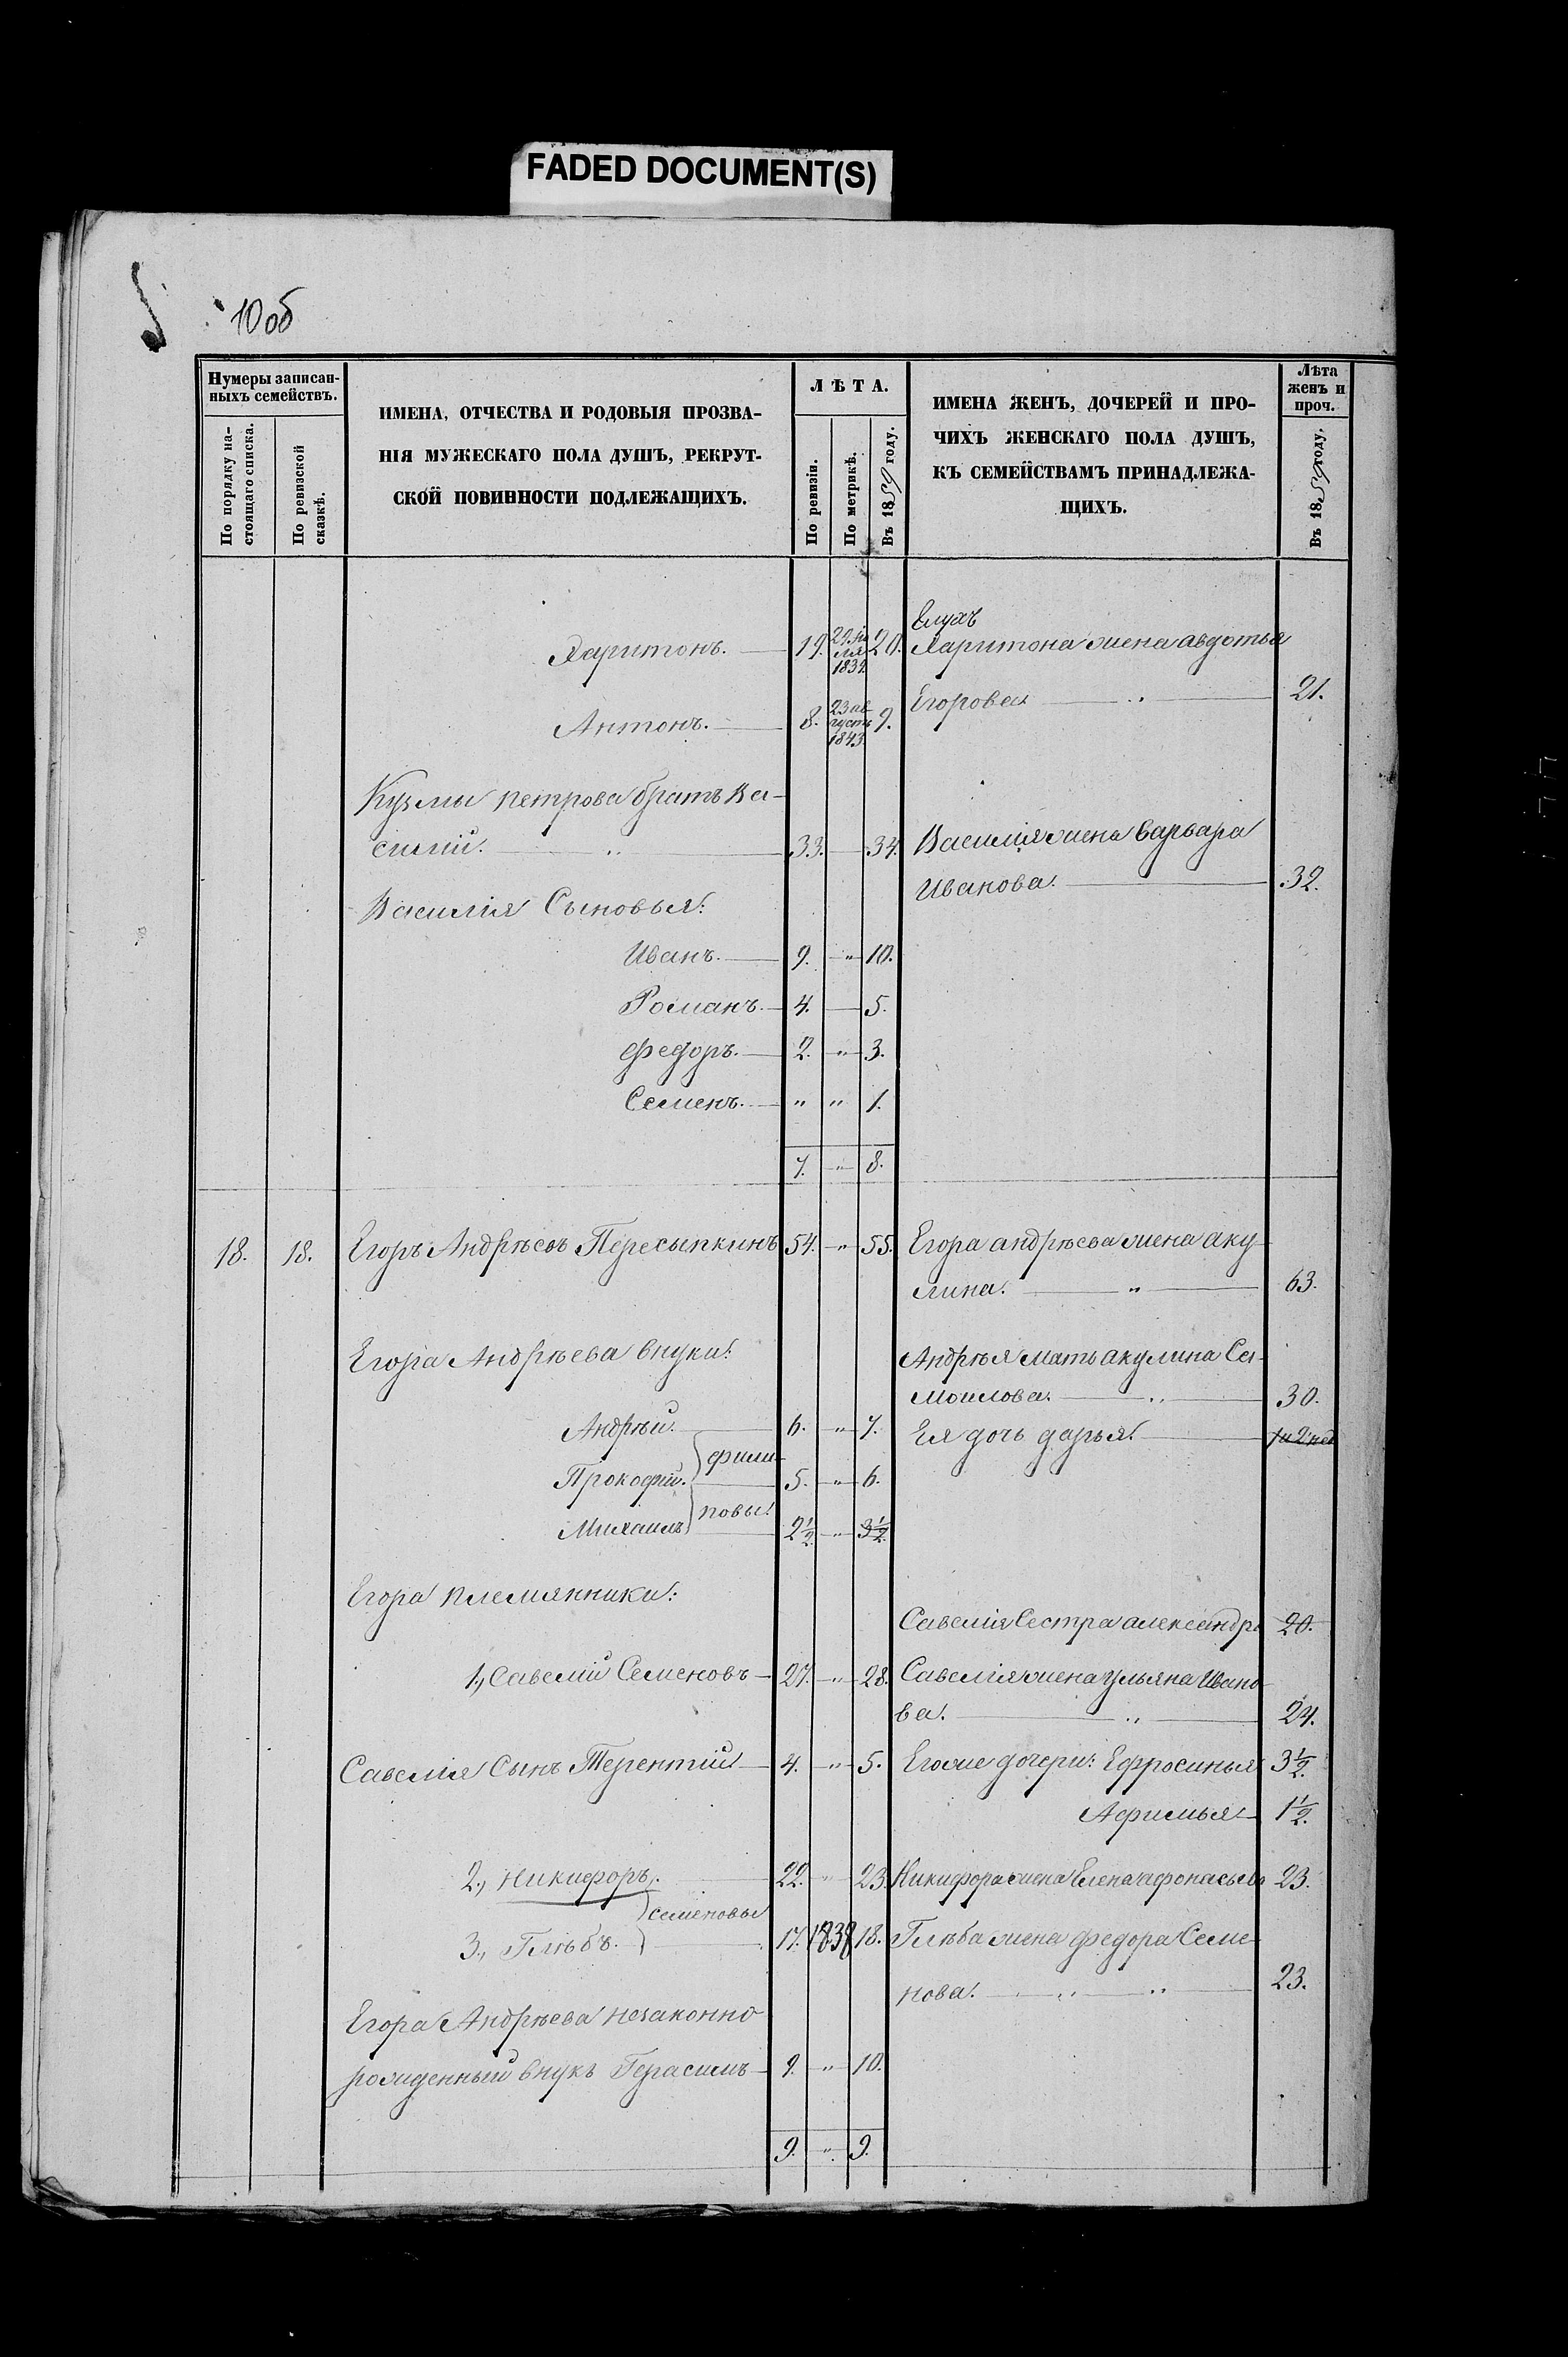 FADED DOCUMENT(S)
10 об
Нумеры записан-
ныхъ семействъ.
По порядку на-
стоящаго списка.
По ревизской
сказкѣ.
ИМЕНА, ОТЧЕСТВА И РОДОВЫЯ ПРОЗВА-
НІЯ МУЖЕСКАГО ПОЛА ДУШЪ, РЕКРУТ-
СКОЙ ПОВИННОСТИ ПОДЛЕЖАЩИХЪ.
ЛѢТА.
По ревизіи.
По метрикѣ.
Въ 1859 году.
ИМЕНА ЖЕНЪ, ДОЧЕРЕЙ И ПРО-
ЧИХЪ ЖЕНСКАГО ПОЛА ДУШЪ,
КЪ СЕМЕЙСТВАМЪ ПРИНАДЛЕЖА-
ЩИХЪ.
Лѣта
женъ и
проч.
Въ 1859 году.
Харитонъ. 19. 1839 20. Харитона жена авдотья
Егорова 21.
Антонъ. 8. 23 ав-
густа
1843. 9.
Кузмы петрова братъ Ва-
силій. " 33. 34. Василія жена варвара
Иванова. 32.
Василія Сыновья:
Иванъ. 9. " 10.
Романъ. 4. 5.
Федоръ. 2. " 3.
Семенъ. " " 1.
7. " 8.
18. 18. Егоръ Андрѣевъ Пересыпкинъ 54. " 55. Егора андрѣева жена аку-
лина. " 63.
Егора Андрѣева внуки: Андрѣя мать акулина Са-
моилова. " 30.
Андрѣй. 6. " 7. Ея дочь дарья. 1 и 2 нед
Прокофій. фили- 5. " 6.
Михаилъ повы. 2½ " 3½
Егора племянники:
Савелія Сестра александра 20.
1., Савелій Семеновъ 27. " 28. Савелія жена ульяна Ивано-
ва. " 24.
Савелія Сынъ Терентій 4. " 5. Егоже дочери: Ефросинья 3½.
Афимья 1½.
2., Никифоръ. 22. " 23. Никифора жена Елена афонасьева 23.
семеновы
3., Глѣбъ. 17. 1838 18. Глѣба жена федора Семе-
нова. " " 23.
Егора Андрѣева незаконно
рожденный внукъ Герасимъ 9. " 10.
9. " 9.